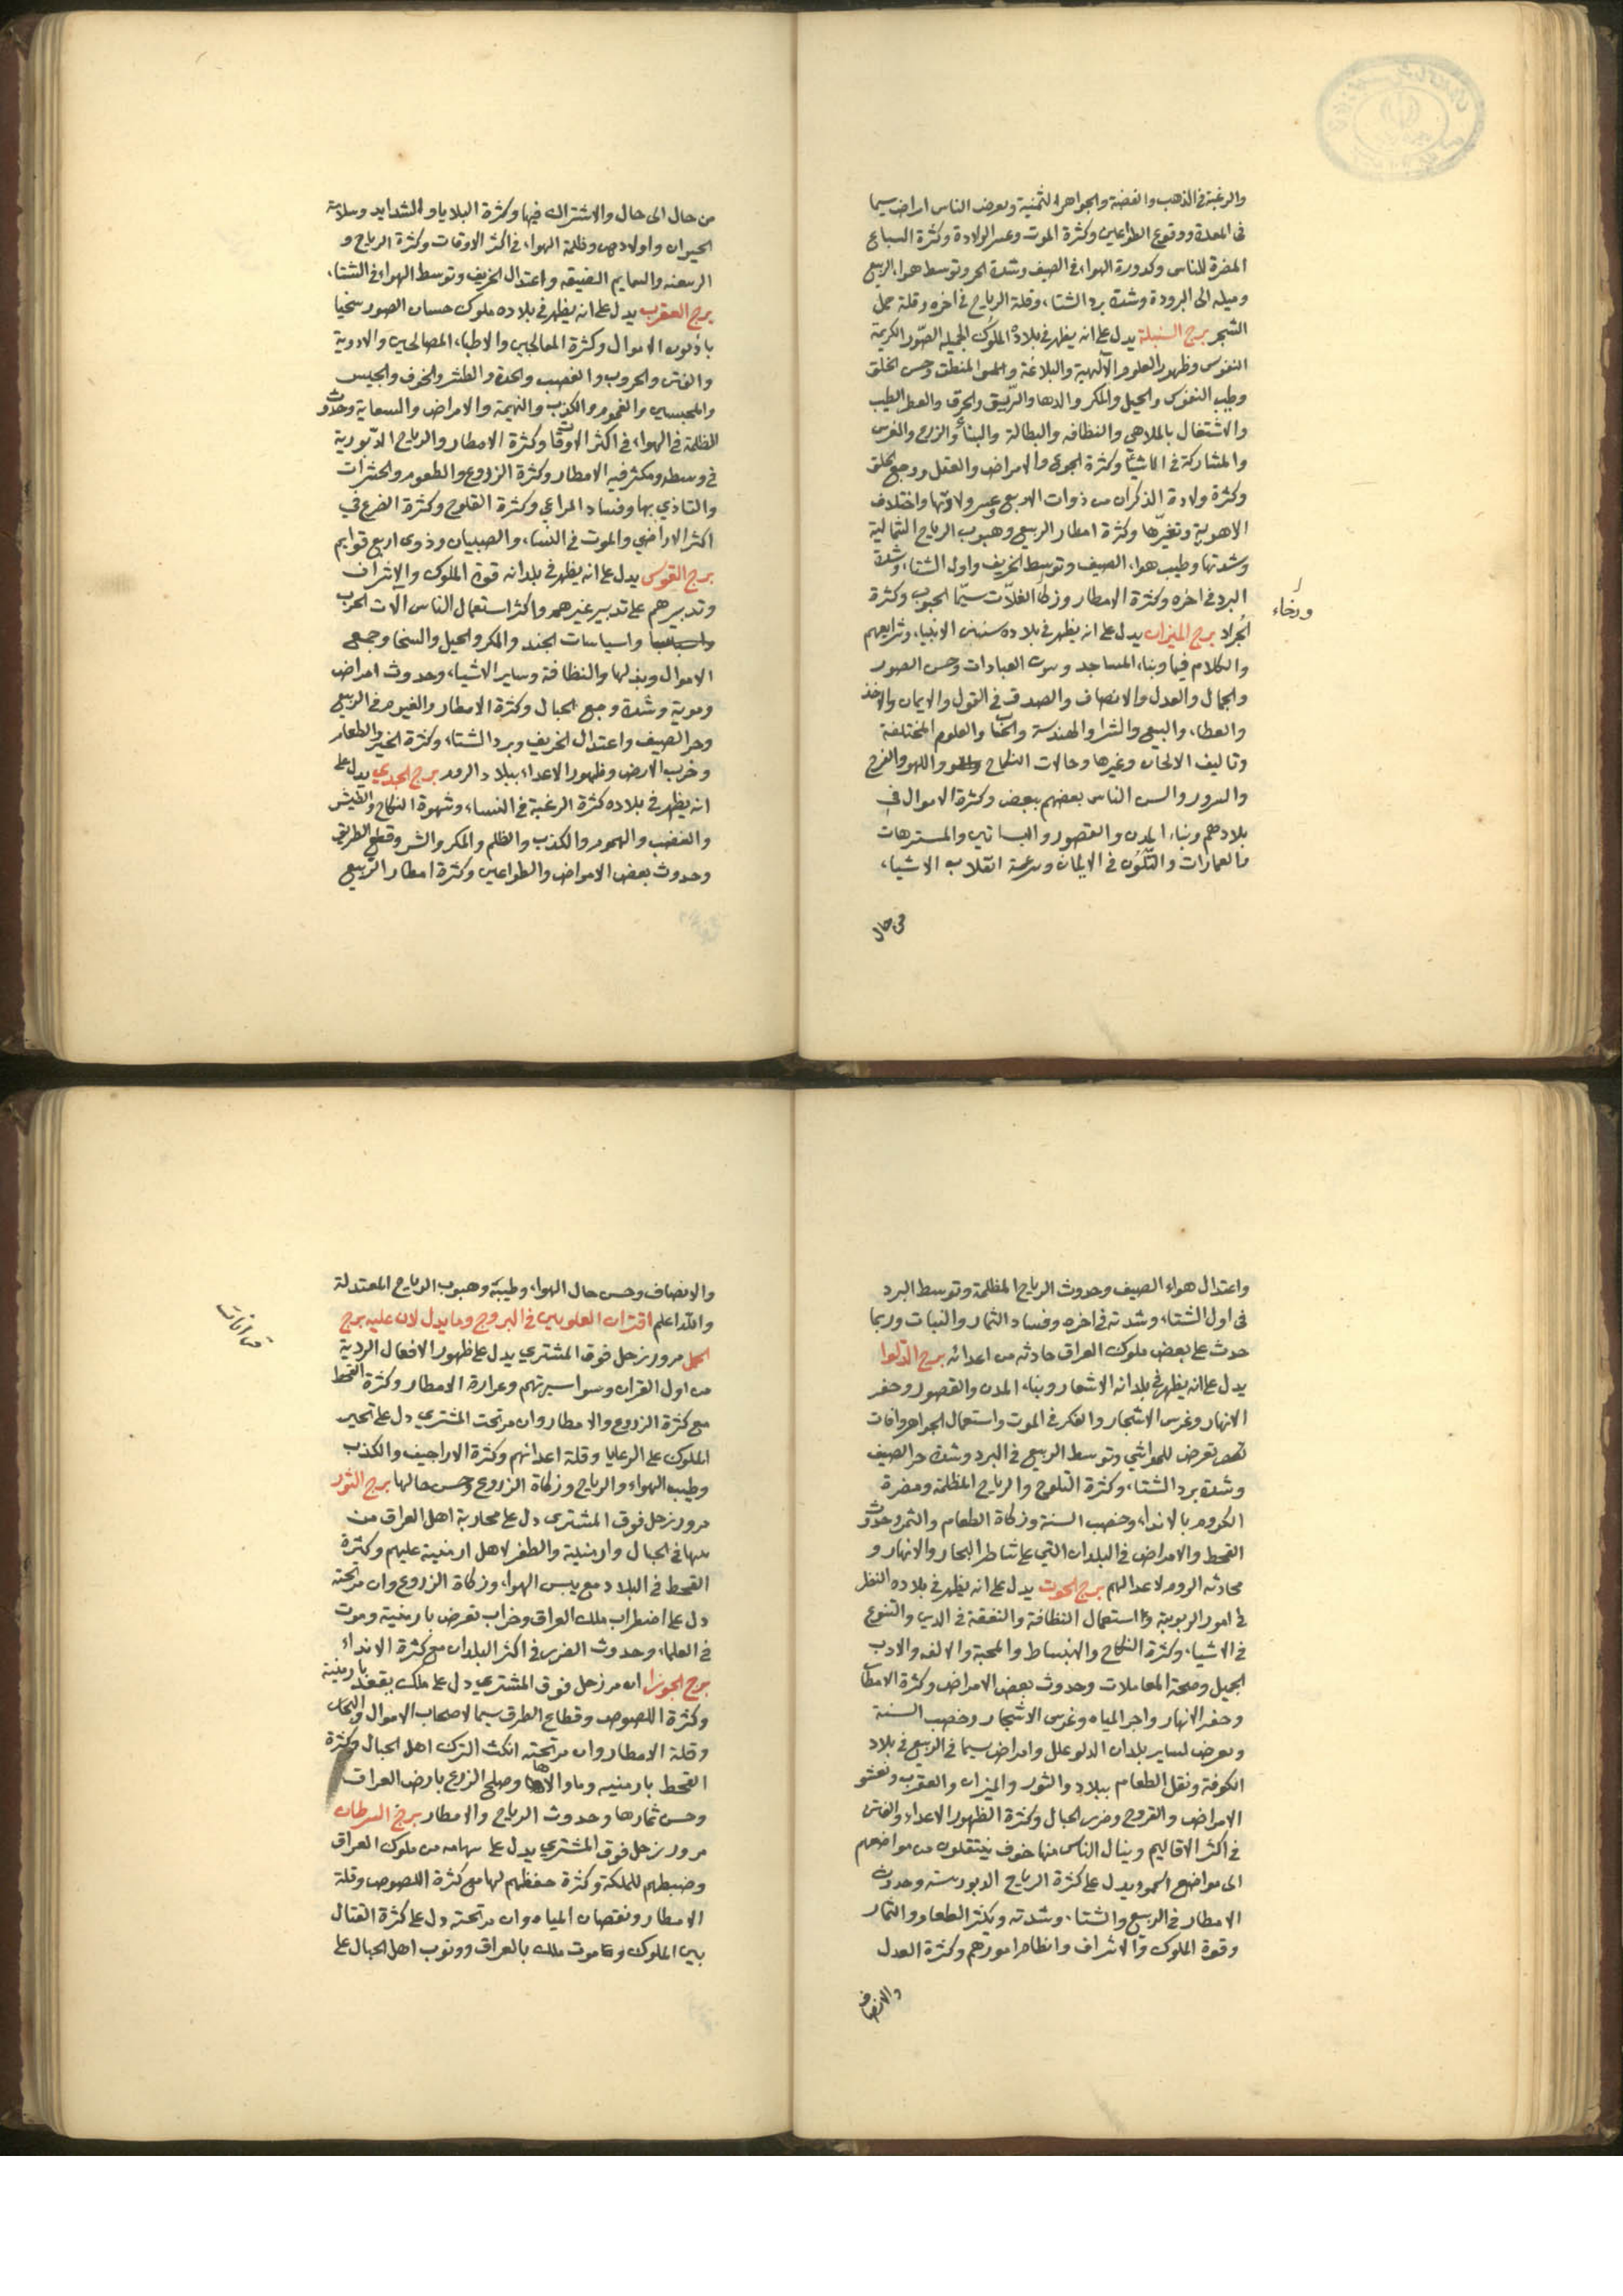 والرغبة في الذهب والفضة والجواهر الثمينة وىعرض الناس امراض سيما
فى المعدة ووقوع الطواعين وكثرة الموت وعسر الولادة وكثرة السباع
المضرة للناس وكدورة الهواء فى الصيف وشدة الحر وتوسط هواء الربيع
وميله الى البرودة وشدة برد الشتاء وقلة الرياح فى اخره وقلة حمل
الشجر برج السنبلة يدل على انه يظهر فى بلاده الملوك الجميله الصور الكريمة
النفوس وظهور العلوم الآلهية والبلاغة والمنطق وحسن الخلق
وطيب النفوس والحيل والمكر والدها والحرق والعطر الطيب
والاشتغال بالملاهي والنظافه والبطالة والبناء والزرع والغرس
والمشاركة فى الاشياء وكثرة الجوع والامراض والعقل ووجع الحلق
وكثرة ولادة الذكران من ذوات الاربع وعسر ولادتها واختلاف
الاهوية وتغيرها وكثرة امطار الربيع وهبوب الرياح الشمالية
وشدتها وطيب هواء الصيف وتوسط الخريف واول الشتاء وشدة
البرد فى اخره وكثرة الامطار وزكا الغلات سيما الحبوب وكثرة
ورخاء
الجراد برج الميزان يدل على انه يظهر فى بلاده سنن الانبياء وشرايعهم
والكلام فيها وبناء المساجد وبيوت العبادات وحسن الصور
والجمال والعدل والانصاف والصدق فى القول والايمان والاخذ
والعطاء والبيع والشرا والهندسة والحساب والعلوم المختلفة
وتاليف الالحان وغيرها وحالات النكاح واللهو والفرح
والسرور والس الناس بعضهم ببعض وكثرة الاموال في
بلادهم وبناء المدن والقصور والبساتين والمسترهات
والعمارات والتلون فى الايمان وسرعة انقلاب الاشياء
من حال
من حال الى حال والاشتراك فيها وكثرة البلايا والشدايد وسلامة
الحيوان واولادهن وظلمة الهواء فى اكثر الاوقات وكثرة الرياح و
الربعنه والسمايم الضيقه واعتدال الخريف وتوسط الهواء فى الشتاء
برج العقرب يدل على انه يظهر فى بلاده ملوك حسان الصور سخيا
باذلون الاموال وكثرة المعالجين والاطباء المصالحين والادوية
والفتن والحروب والغضب والحدة والطيش والخوف والجيس
والمحبسين والغموم والكذب والنميمة والامراض والسعاية وحدوث
الظلمة فى الهواء فى اكثر الاوقات وكثرة الامطار والرياح الدبورية
فى وسطه ومكثر فيه الامطار وكثرة الزروع والطعوم والحشرات
والتاذي بها وفساد المراعي وكثرة الثلوج وكثرة الفزع في
اكثر الاراضي والموت فى النساء والصبيان وذوى اربع قوايم
برج القوس يدل على انه يظهر فى بلدانه قوة الملوك والاشراف
وتدبيرهم على تدبير غيرهم واكثر استعمال الناس الات الحرب
واسياسات الجند والمكر والحيل والسخا وجمع
الاموال وبذلها والنظافة وساير الاشياء وحدوث امراض
دموية وشدة وجع الحبال وكثرة الامطار والغيوم فى الربيع
وحر الصيف واعتدال الخريف وبرد الشتاء وكثرة الخير والطعام
وخرب الارض وظهور الاعداء ببلاد الروم برج الجدي يدل على
انه يظهر فى بلاده كثرة الرغبة فى النساء وشهوة النكاح والطيش
والغضب والهموم والكذب والظلم والمكر والشر وقطع الطريق
وحدوث بعض الامراض والطواعين وكثرة امطار الربيع
واعتدال هواء الصيف وحدوث الرياح المظلمة وتوسط البرد
فى اول الشتاء وشدته فى اخره وفساد الثمار والنبات وربما
حدث على بعض ملوك العراق حادثه من اعدائه برج الدلوا
يدل على انه يظهر فى بلدانه الاشعار وبناء المدن والقصور وحفر
الانهار وغرس الاشجار والفكر فى الموت واستعمال الجواهر وافات
تعرض للمواشي وتوسط الربيع فى البرد وشدة حر الصيف
وشدة برد الشتاء وكثرة الثلوج والرياح المظلمة ومضرة
الكروم بالانداء وخصب السنة وزكاة الطعام والثمر وحدوث
القحط والامراض فى البلدان التي على شاطر البحار والانهار و
محادثه الروم لاعدالهم برج الحوت يدل على انه يظهر فى بلاده النظر
فى امور الربوبية واستعمال النظافة والنفقة فى الدين والتنوع
فى الاشياء وكثرة النكاح والانبساط والمحبة والالفه والادب
الجميل وصحة المعاملات وحدوث بعض الامراض وكثرة الامطار
وحفر الانهار واجر المياه وغرس الاشجار وخصب السنة
وىعرض لساير بلدان الدلو علل وامراض سيما فى الربيع فى بلاد
الكوفة ونقل الطعام ببلاد والثور والميزان والعقرب وىفشو
الامراض والقروح وضرر الحبال وكثرة الظهور الاعداء والفتن
فى اكثر الاقاليم وينال الناس منها خوف ينتقلون من مواضعهم
الى مواضع اخر ويدل على كثرة الرياح الدبورية وحدوث
الامطار فى الربيع والشتاء وشدته وىكثر الطعام والثمار
وقوة الملوك والاشراف وانظام امورهم وكثرة العدل
والانصاف
والانصاف وحسن حال الهواء وطيبة وهبوب الرياح المعتدلة
والله اعلم اقتران العلويين فى البروج وما يدل لان عليه برج
قرانات
الحمل مرور زحل فوق المشتري يدل على ظهور الافعال الردية
من اول القران وسوا سيرتهم وعرارة الامطار وكثرة القحط
مع كثرة الزروع والامطار وان مر تحت المشتري دل على تحير
الملوك على الرعايا وقلة اعدائهم وكثرة الاراجيف والكذب
وطيب الهواء والرياح وزكاة الزروع وحسن حالها برج الثور
مرور زحل فوق المشتري دل على محاربة اهل العراق من
فى الجبال وارمنية والظفر لاهل ارمنية عليهم وكثرة
القحط فى البلاد مع يبس الهواء وزكاة الزروع وان مر تحته
دل على اضطراب ملك العراق وخراب تعرض بارمنية وموت
فى العلماء وحدوث الضرر فى اكثر البلدان مع كثرة الانداء
برج الجوزا ان مر زحل فوق المشتري دل على ملك بارمنية
وكثرة اللصوص وقطاع الطرق سيما لاصحاب الاموال والتجار
وقلة الامطار وان مر تحته انكث الترك اهل الجبال وكثرة
القحط بارمنيه وما والاها وصلح الزرع بارض العراق
وحسن ثمارها وحدوث الرياح والامطار برج السرطان
مرور زحل فوق المشتري يدل على سهامه من ملوك العراق
وضبطهم للملكة وكثرة حفظهم لها مع كثرة اللصوص وقلة
الامطار ونقصان المياه وان مر تحته دل على كثرة القتال
بين الملوك وموت ملك بالعراق ووثوب اهل الجبال على